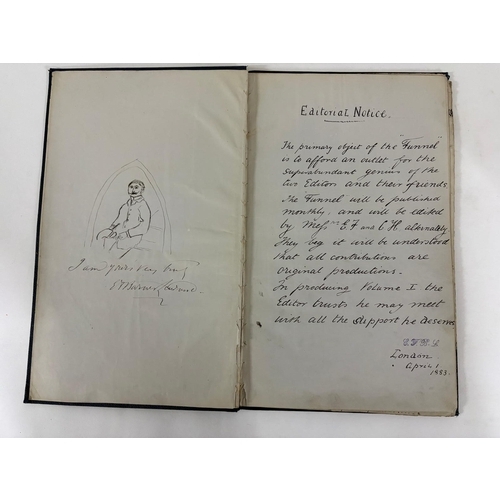 I am yours very truly
Editorial Notice.
The primary object of the "Funnel"
is to afford an outlet for the
superabundant genius of the
two Editors and their friends
The Funnel will be published
monthly, and will be edited
by Messrs EF and CH alternately
They beg it will be understood
that all contributions are
original productions.
In producing Volume I the
Editor trusts he may meet
with all the support he deserves
London
April 1
1883.